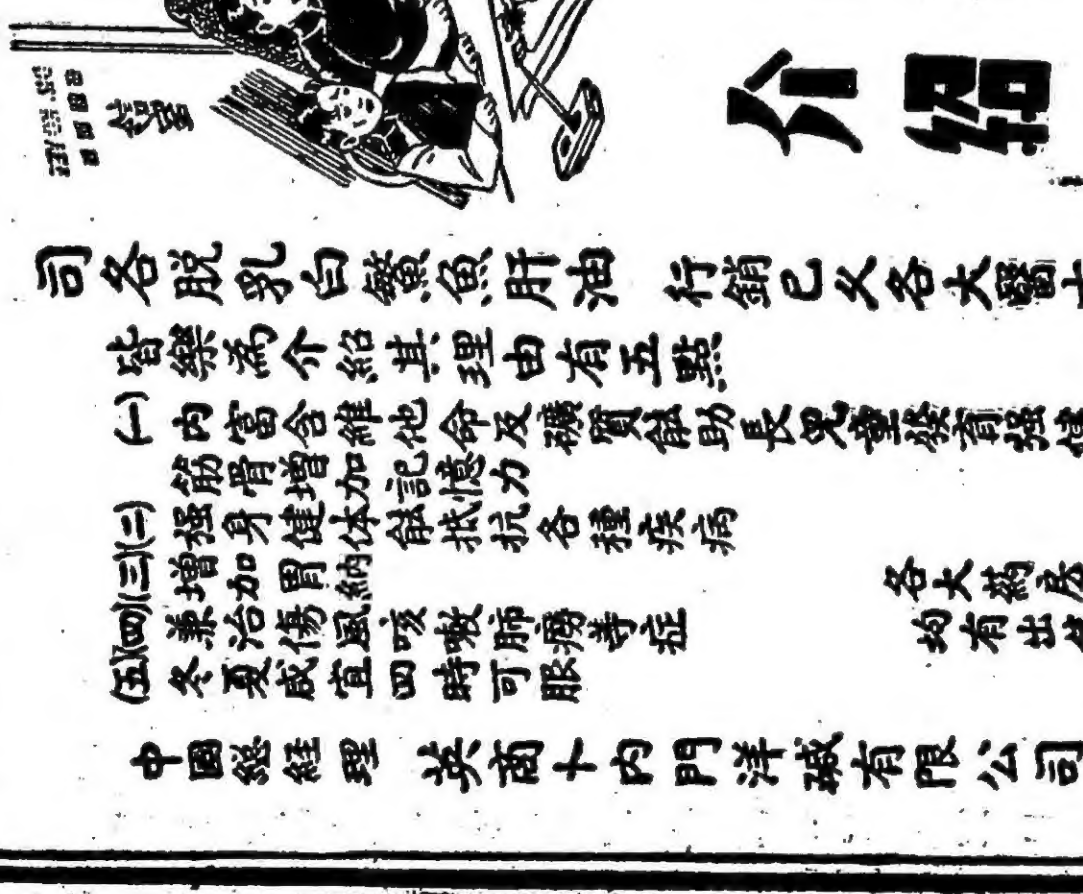 介紹
司各脫乳白鰵魚肝油 行銷已久各大醫士
皆樂為介紹其理由有五點
(一) 內富含維他命及礦質能助長兒童發育强健
筋骨增加記憶力
(二) 强身健体 能抵抗各種疾病
(三) 增加胃納
(四) 兼治傷風咳嗽肺癆等症
(五) 冬夏咸宜四時可服
各大葯房
均有出售
中國總經理 英商卜內門洋碱有限公司